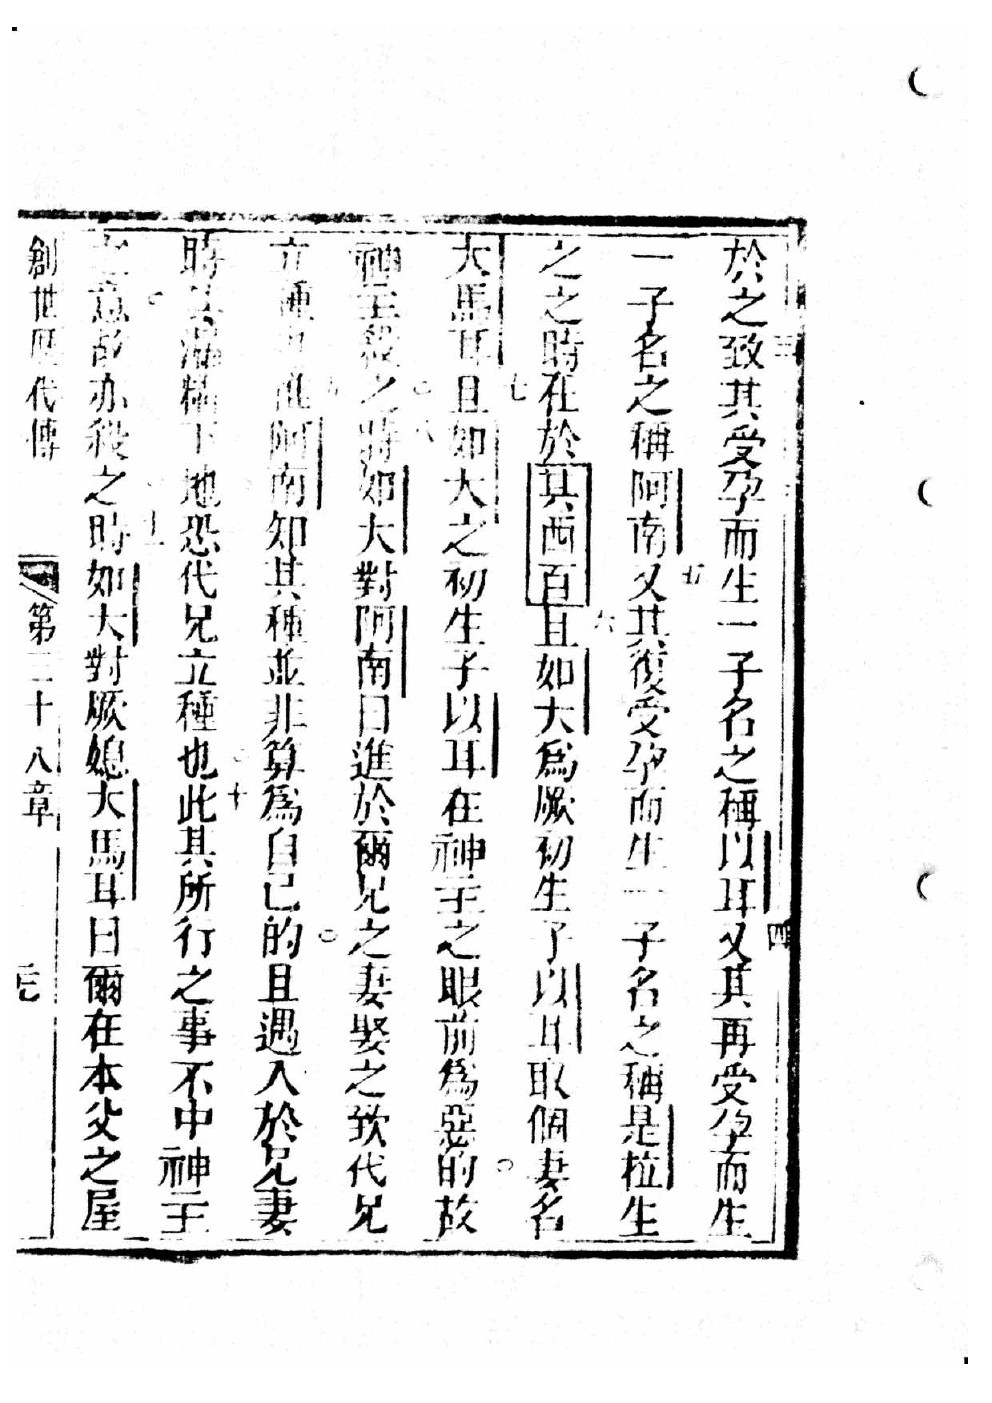 於之致其受孕而生一子名之稱以耳又其再受孕而生
一子名之稱阿南又其復受孕而生一子名之稱是拉生
之之時在於其西百且如大為厥初生子以耳取個妻名
大馬耳且如大之初生子以耳在神主之眼前為惡的故
神主殺之時如大對阿南曰進於爾兄之妻娶之致代兄
立種也惟阿南知其種並非算為自己的且遇入於兄妻
時 下地恐代兄立種也此其所行之事不中神主
意故亦殺之時如大對厥媳大馬耳曰爾在本父之屋
創世歷代傳 第三十八章
三 四
五
六
七
八
十